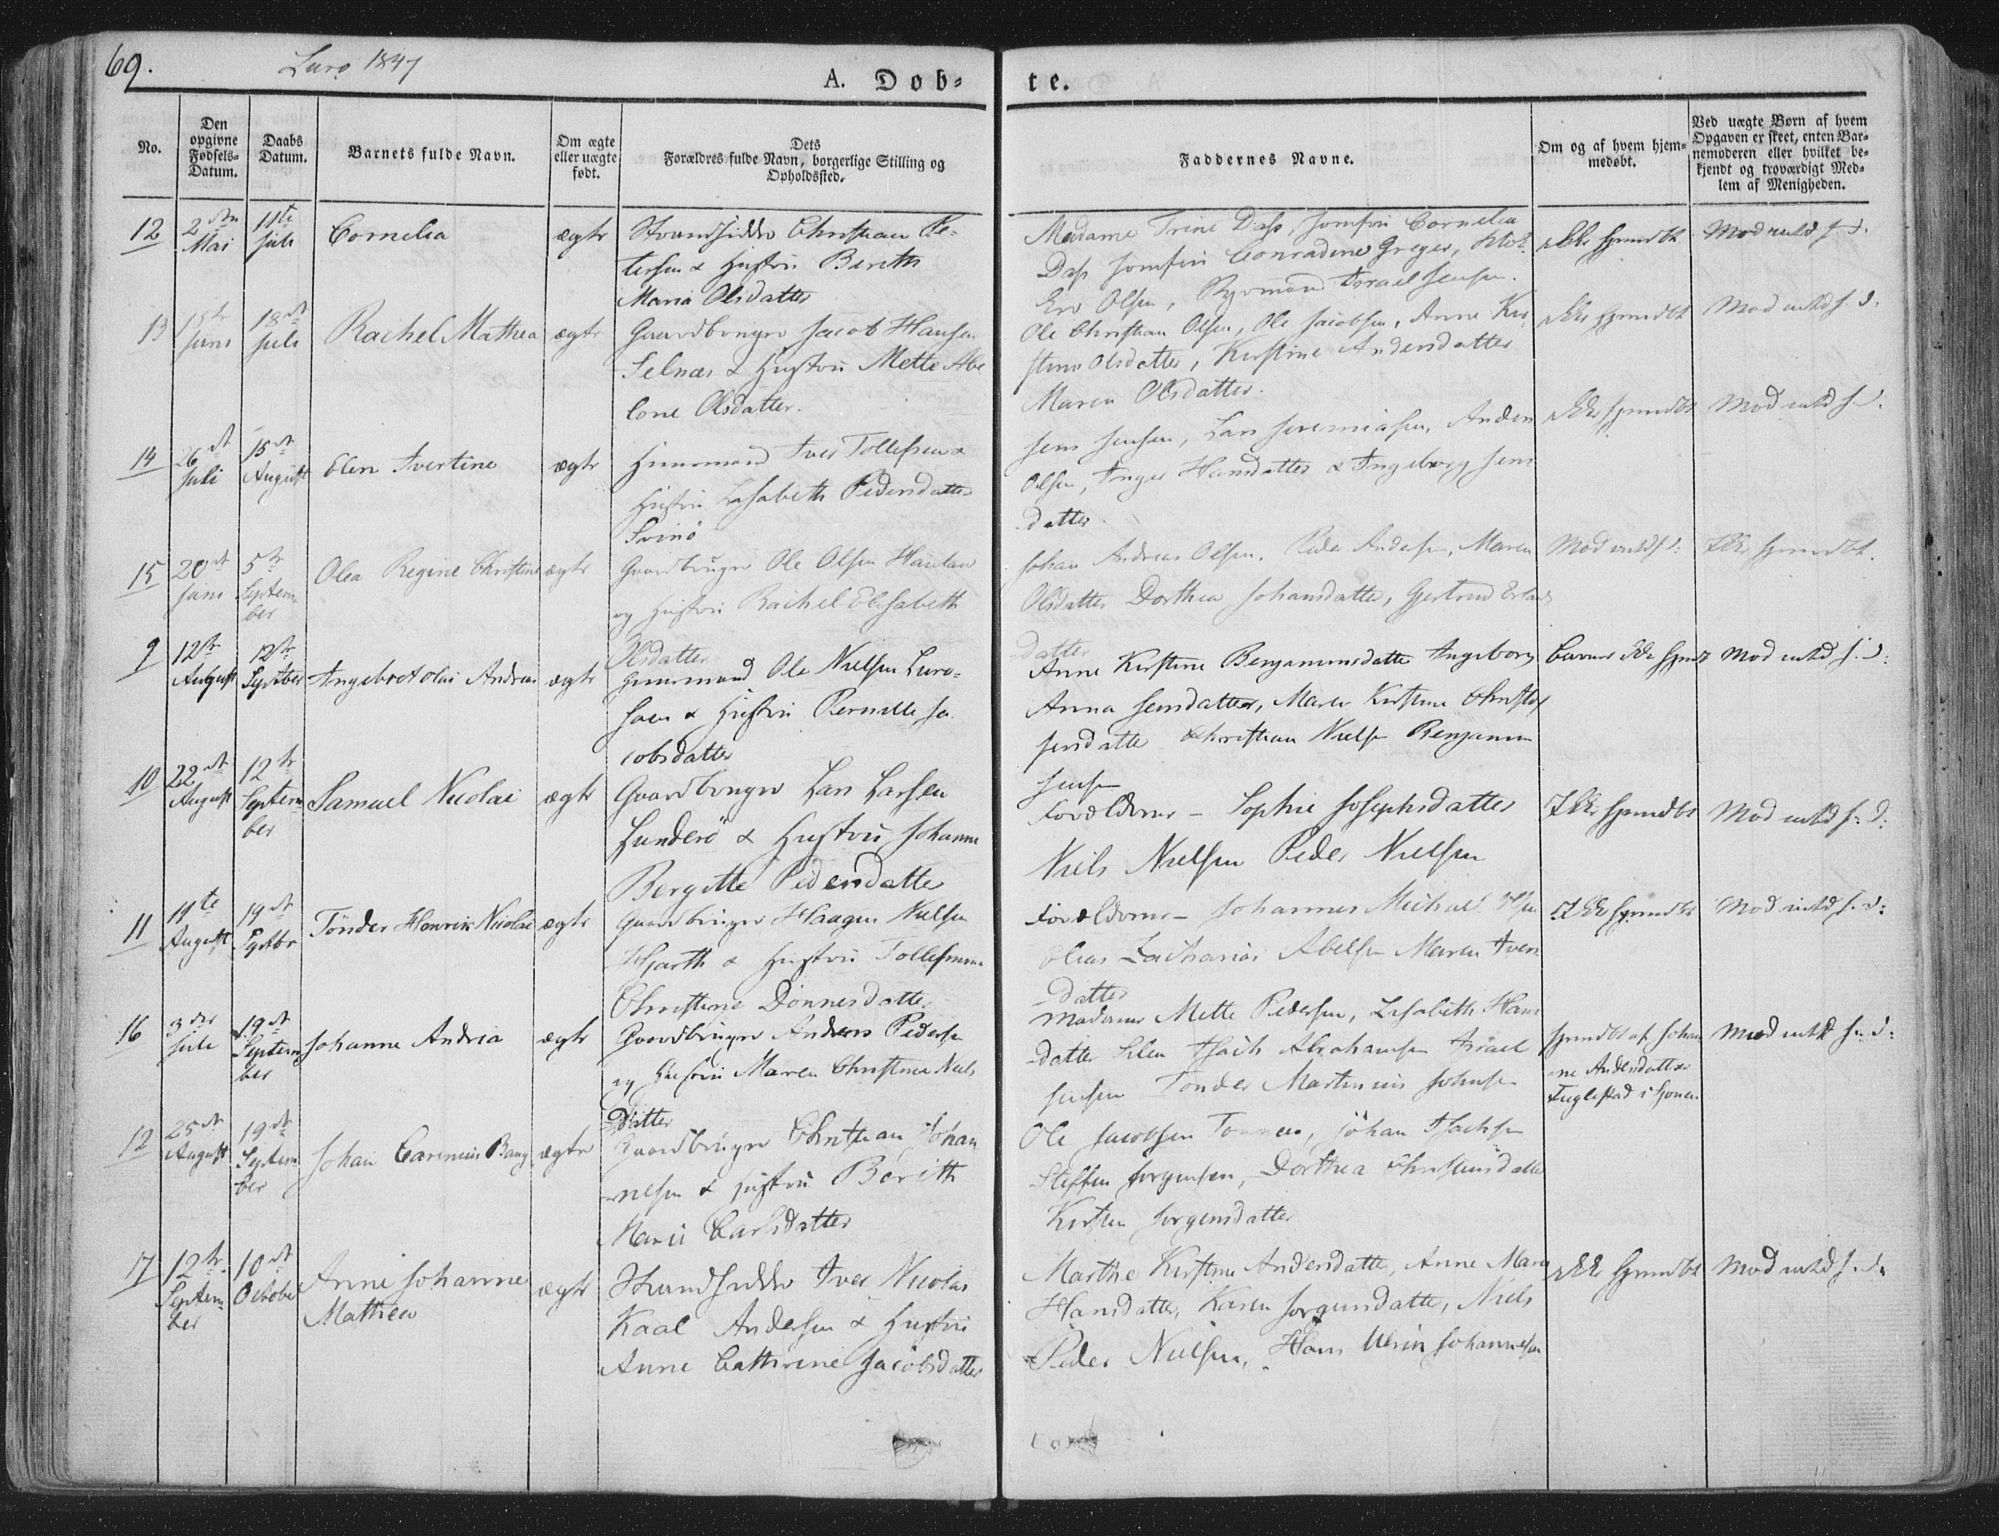 69.
Lurø 1847
A. Døb-
te.
No.
Den opgivne Fødsels-Datum.
Daabs Datum.
Barnets fulde Navn.
Om ægte eller uægte født.
Dets Forældres fulde Navn, borgerlige Stilling og Opholdssted.
Faddernes Navne.
Om og af hvem hjem-medøbt.
Ved uægte Børn af hvem Opgaven er skeet, enten Bar-nemoderen eller hvilket be-kjendt og troværdigt Med-lem af Menigheden.
12
2den Mai
11te Juli
Cornelia
ægte
Strandsidder Christian Pe-
tersen & Hustru Berith
Maria Olsdatter
Madame Trine Dass, Jomfru Cornelia
Dass Jomfru Conradine Greger,
Olsen, Israelsensen.
Ikke hjemdbt
Mod untd s. d.
13
Juni
18de Juli
Rachel Mathea
ægte
Gaardbruger Jacob Hansen
Selnæs & Hustru Mette Abe
lone Olsdatter.
Ole Christian Olsen, Ole Jacobsen, Anne Kir-
stine Olsdatter, Kirstine Andersdatter
Maren Olsdatter.
Ikke hjemdbt
Mod untd s. d.
14
26de Juli
15de August
Elen Ivertine
ægte
Huusmand Iver Tollefsen &
Hustru Lisabeth Pedersdatter
Svinø
Jens Jensen, Lars Jeremiasen, Anders
Olsen, Inger Hansdatter & Ingeborg Jens
datter.
Ikke hjemdbt
Mod untd s. d.
15
20de Juni
5te Septem-
ber
Olea Regine Christine
ægte
Gaardbruger Ole Olsen
og Hustru Rachel Elisabeth
Olsdatter
Johan Andreas Olsen. Peder Andersen, Maren
Olsdatter Dorthea Johansdatter, Gjertrud
datter
Mod untd s. d.
Ikke hjemdbt.
9
12te August
12te Septber
Ingebret Olai Andreas
ægte
Huusmand Ole Nielsen Lurø-
& Hustru Pernille Ja
cobsdatter
Anne Kirstine Benjaminsdatter Ingeborg
Anna Jensdatter, Maren Kirstine Christof
fersdatter Christian Niels Benjamin
sensen
Barnet Ikke hjemdbt
Mod untd s. d.
10
22de August
12te Septem-
ber
Samuel Nicolai
ægte
Gaardbruger Lars Larsen
Sunderø & Hustru Johanna
Bergitte Pedersdatter
Forældrene - Sophie Josephsdatter
Niels Nielsen Peder Nielsen
Ikke hjemdbt
Mod untd s. d.
11
11te August
19de Septbr
Tønder Henrik Nicolai
ægte
Gaardbruger Haagen Nielsen
Hjarth & Hustru
Christine Dønnesdatter
Forældrene - Johannes Michael
Elias Zacharias Abelsen Maren Ivers
datter
Ikke hjemdbt
Mod untd s. d.
16
3die Juli
19de Septem
ber
Johanne Andrea
ægte
Gaardbruger Anders Pedersen
og Hustru Maren Christine Niels
datter
Madame Mette Pedersen, Lisabeth Hans
datter Isach Abrahamsen Israel
Jensen Tønder Martinius Johnsen
hjemdbt af Johan
ne Andersdatter
Fuglestad i
Mod untd s. d.
12
25de August
19de Septem
ber
Johan Carenius Bang
ægte
Gaardbruger Christian Johan
nesen & Hustru Berith
Marie Carlsdatter
Ole Jacobsen Johan Isachsen
Steffen Jørgensen, Dorthea Christensdatter
Kirsten Jørgensdatter
17
12te Septem-
ber
10de October
Anne Johanne
Mathea
ægte
Strandsidder Iver Nicolai
Kaal Andersen & Hustru
Anne Cathrine Jacobsdatter
Marthe Kirstine Andersdatter, Anne Mari
Hansdatter, Karen Jørgensdatter, Niels
Peder Nielsen, Hans Ulrik Johannesen
Ikke hjemdbt
Mod untd s. d.